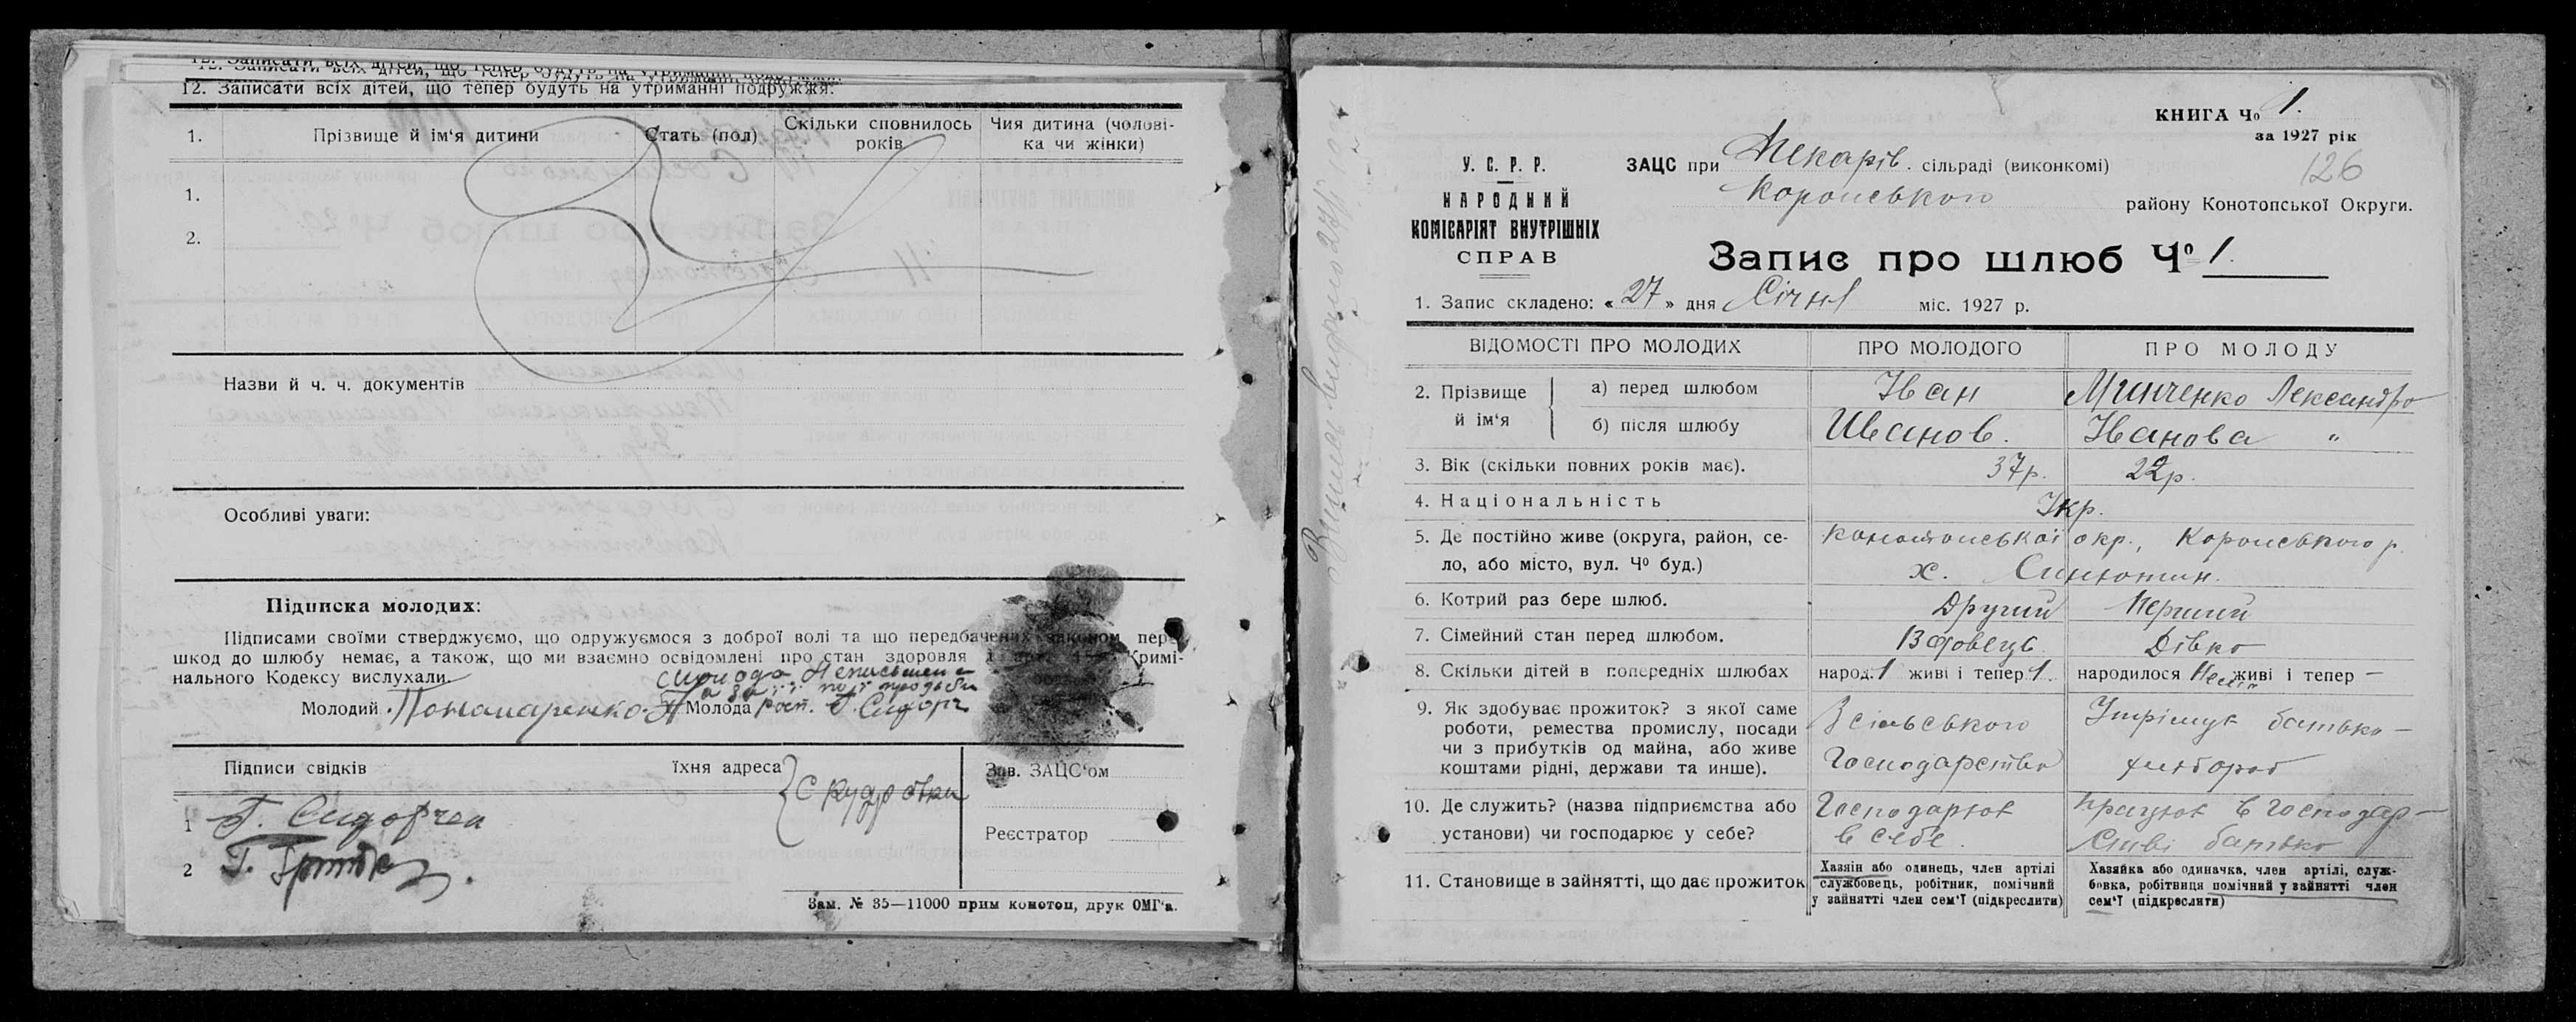 12. Записати всіх дітей, що тепер будуть на утриманні подружжя:
1. Прізвище й ім'я дитини Стать (пол) Скільки сповнилось років Чия дитина (чолові-ка чи жінки)
1.
2.
Назви й ч. ч. документів
Особливі уваги:
Підписка молодих:
Підписами своїми стверджуємо, що одружуємося з доброї волі та що передбачених законом пере-
шкод до шлюбу немає, а також, що ми взаємно освідомлені про стан здоровля і арт. Кримі-
нального Кодексу вислухали.
а за її
Молодий Пономаренко Молода розп. Г. Сидорч
Підписи свідків їхня адреса Зав. ЗАЦС'ом
с Кудровка
1 Г. Сидорчен
Реєстратор
2 Г.
Зам. № 35—11000 прим конотоп, друк ОМГ'а.
КНИГА Ч° 1.
за 1927 рік
126
У. С. Р. Р.
НАРОДНИЙ
КОМІСАРІЯТ ВНУТРІШНІХ
СПРАВ
ЗАЦС при Пекарів. сільраді (виконкомі)
Коропського району Конотопської Округи.
Запис про шлюб Ч° 1.
1. Запис складено: « 27 » дня Січня міс. 1927 р.
ВІДОМОСТІ ПРО МОЛОДИХ ПРО МОЛОДОГО ПРО МОЛОДУ
2. Прізвище й ім'я а) перед шлюбом Іван Минченко Лександра
б) після шлюбу Иванов. Іванова "
3. Вік (скільки повних років має). 37р. 22р.
4. Національність Укр.
5. Де постійно живе (округа, район, се- Конотопської окр., Коропського р.
ло, або місто, вул. Ч° буд.) х. Синютин.
6. Котрий раз бере шлюб. Другий Перший
7. Сімейний стан перед шлюбом. Вдовець Дівка
8. Скільки дітей в попередніх шлюбах народ. 1 живі і тепер 1. народилося живі і тепер —
9. Як здобуває прожиток? з якої саме З сільського Утрімує батько —
роботи, ремества промислу, посади
чи з прибутків од майна, або живе Господарства хлібороб
коштами рідні, держави та инше).
10. Де служить? (назва підприємства або Господарює Працює в господар-
установи) чи господарює у себе? в себе. стві батько
11. Становище в зайнятті, що дає прожиток
Хазяін або одинець, член артілі
службовець, робітник, помічний
у зайнятті член сем'ї (підкреслити)
Хазяйка або одиначка, член артілі, служ-
бовка, робітниця помічний у зайнятті член
сем'ї (підкреслити)